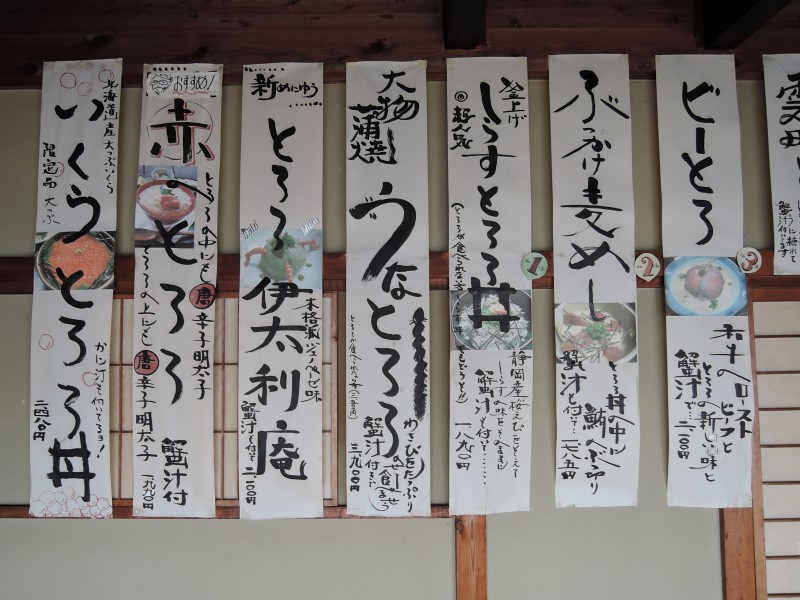 雲丹
蟹汁付いてます
ビーとろ
和牛のロースト
ビーフと
とろろの新しい味と
蟹汁で…
二一〇〇円
1
2
3
ぶっかけ麦めし
とろろ丼の中に
鮪のぶつ切り
蟹汁と付いて…
釜上げ
しらすとろろ丼
◎超人気
静岡産桜えびをそえて
しらすの味をそのままに
蟹汁も付いて……
一八九〇円
大物
蒲焼
うなとろろ
わさびをたっぷり
のせて食べませう
蟹汁付き…
三九〇〇円
新めにゅう
とろろ伊太利庵
本格派ジェノベーゼ味
蟹汁も付いて
二一〇〇円
おすすめ!
赤のとろろ
とろろの中にも唐辛子明太子
とろろの上にも唐辛子明太子
蟹汁付
一九九〇円
北海道産大つぶいくら
いくらとろろ丼
限定品
大つぶ
かに汁も付いてるヨ!
二四八〇円